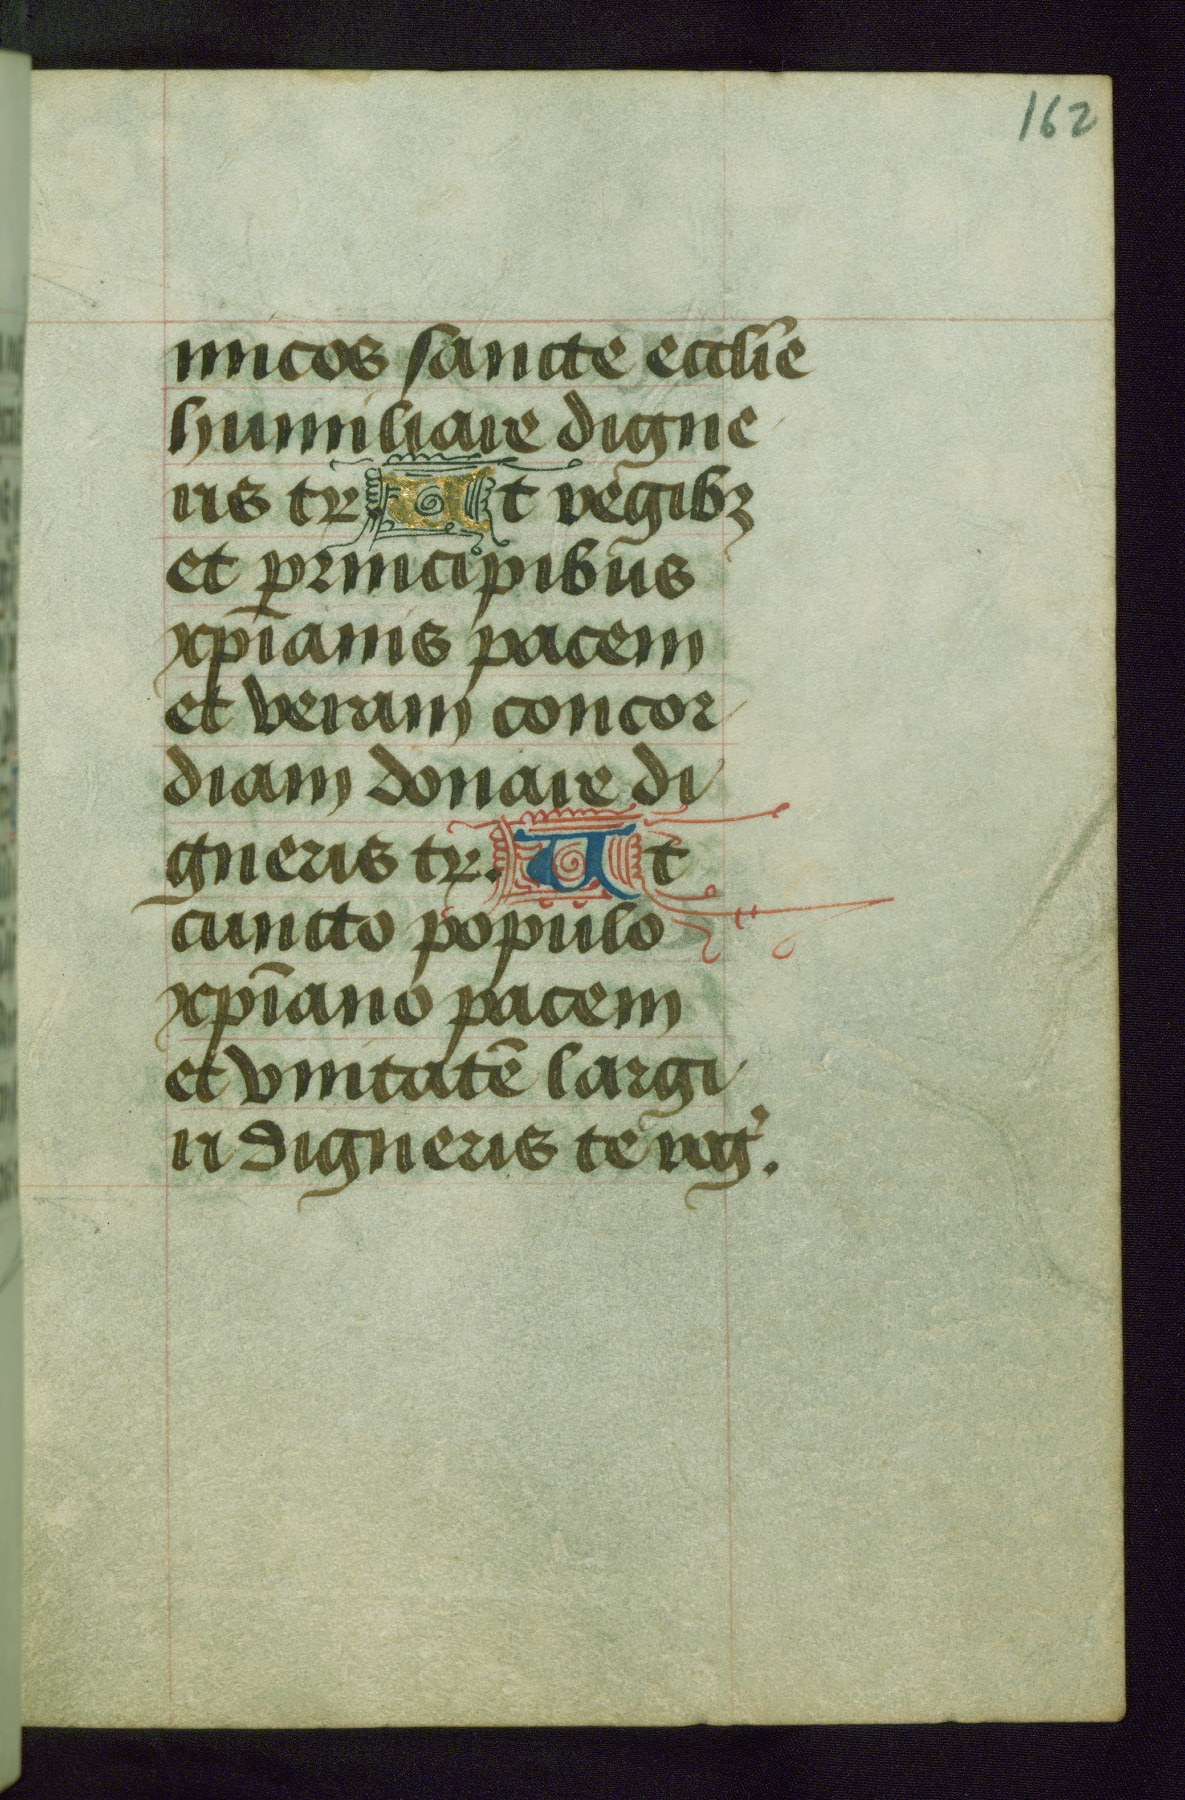 162
micos sancte eccli̅e
humiliare digne
ris tr. Ut regibꝫ
et principibus
xp̅ianis pacem
et veram concor
diam donare di
gneris tr. Ut
cuncto populo
xp̅iano pacem
et vnitate̅ largi
ri digneris te rog̕.